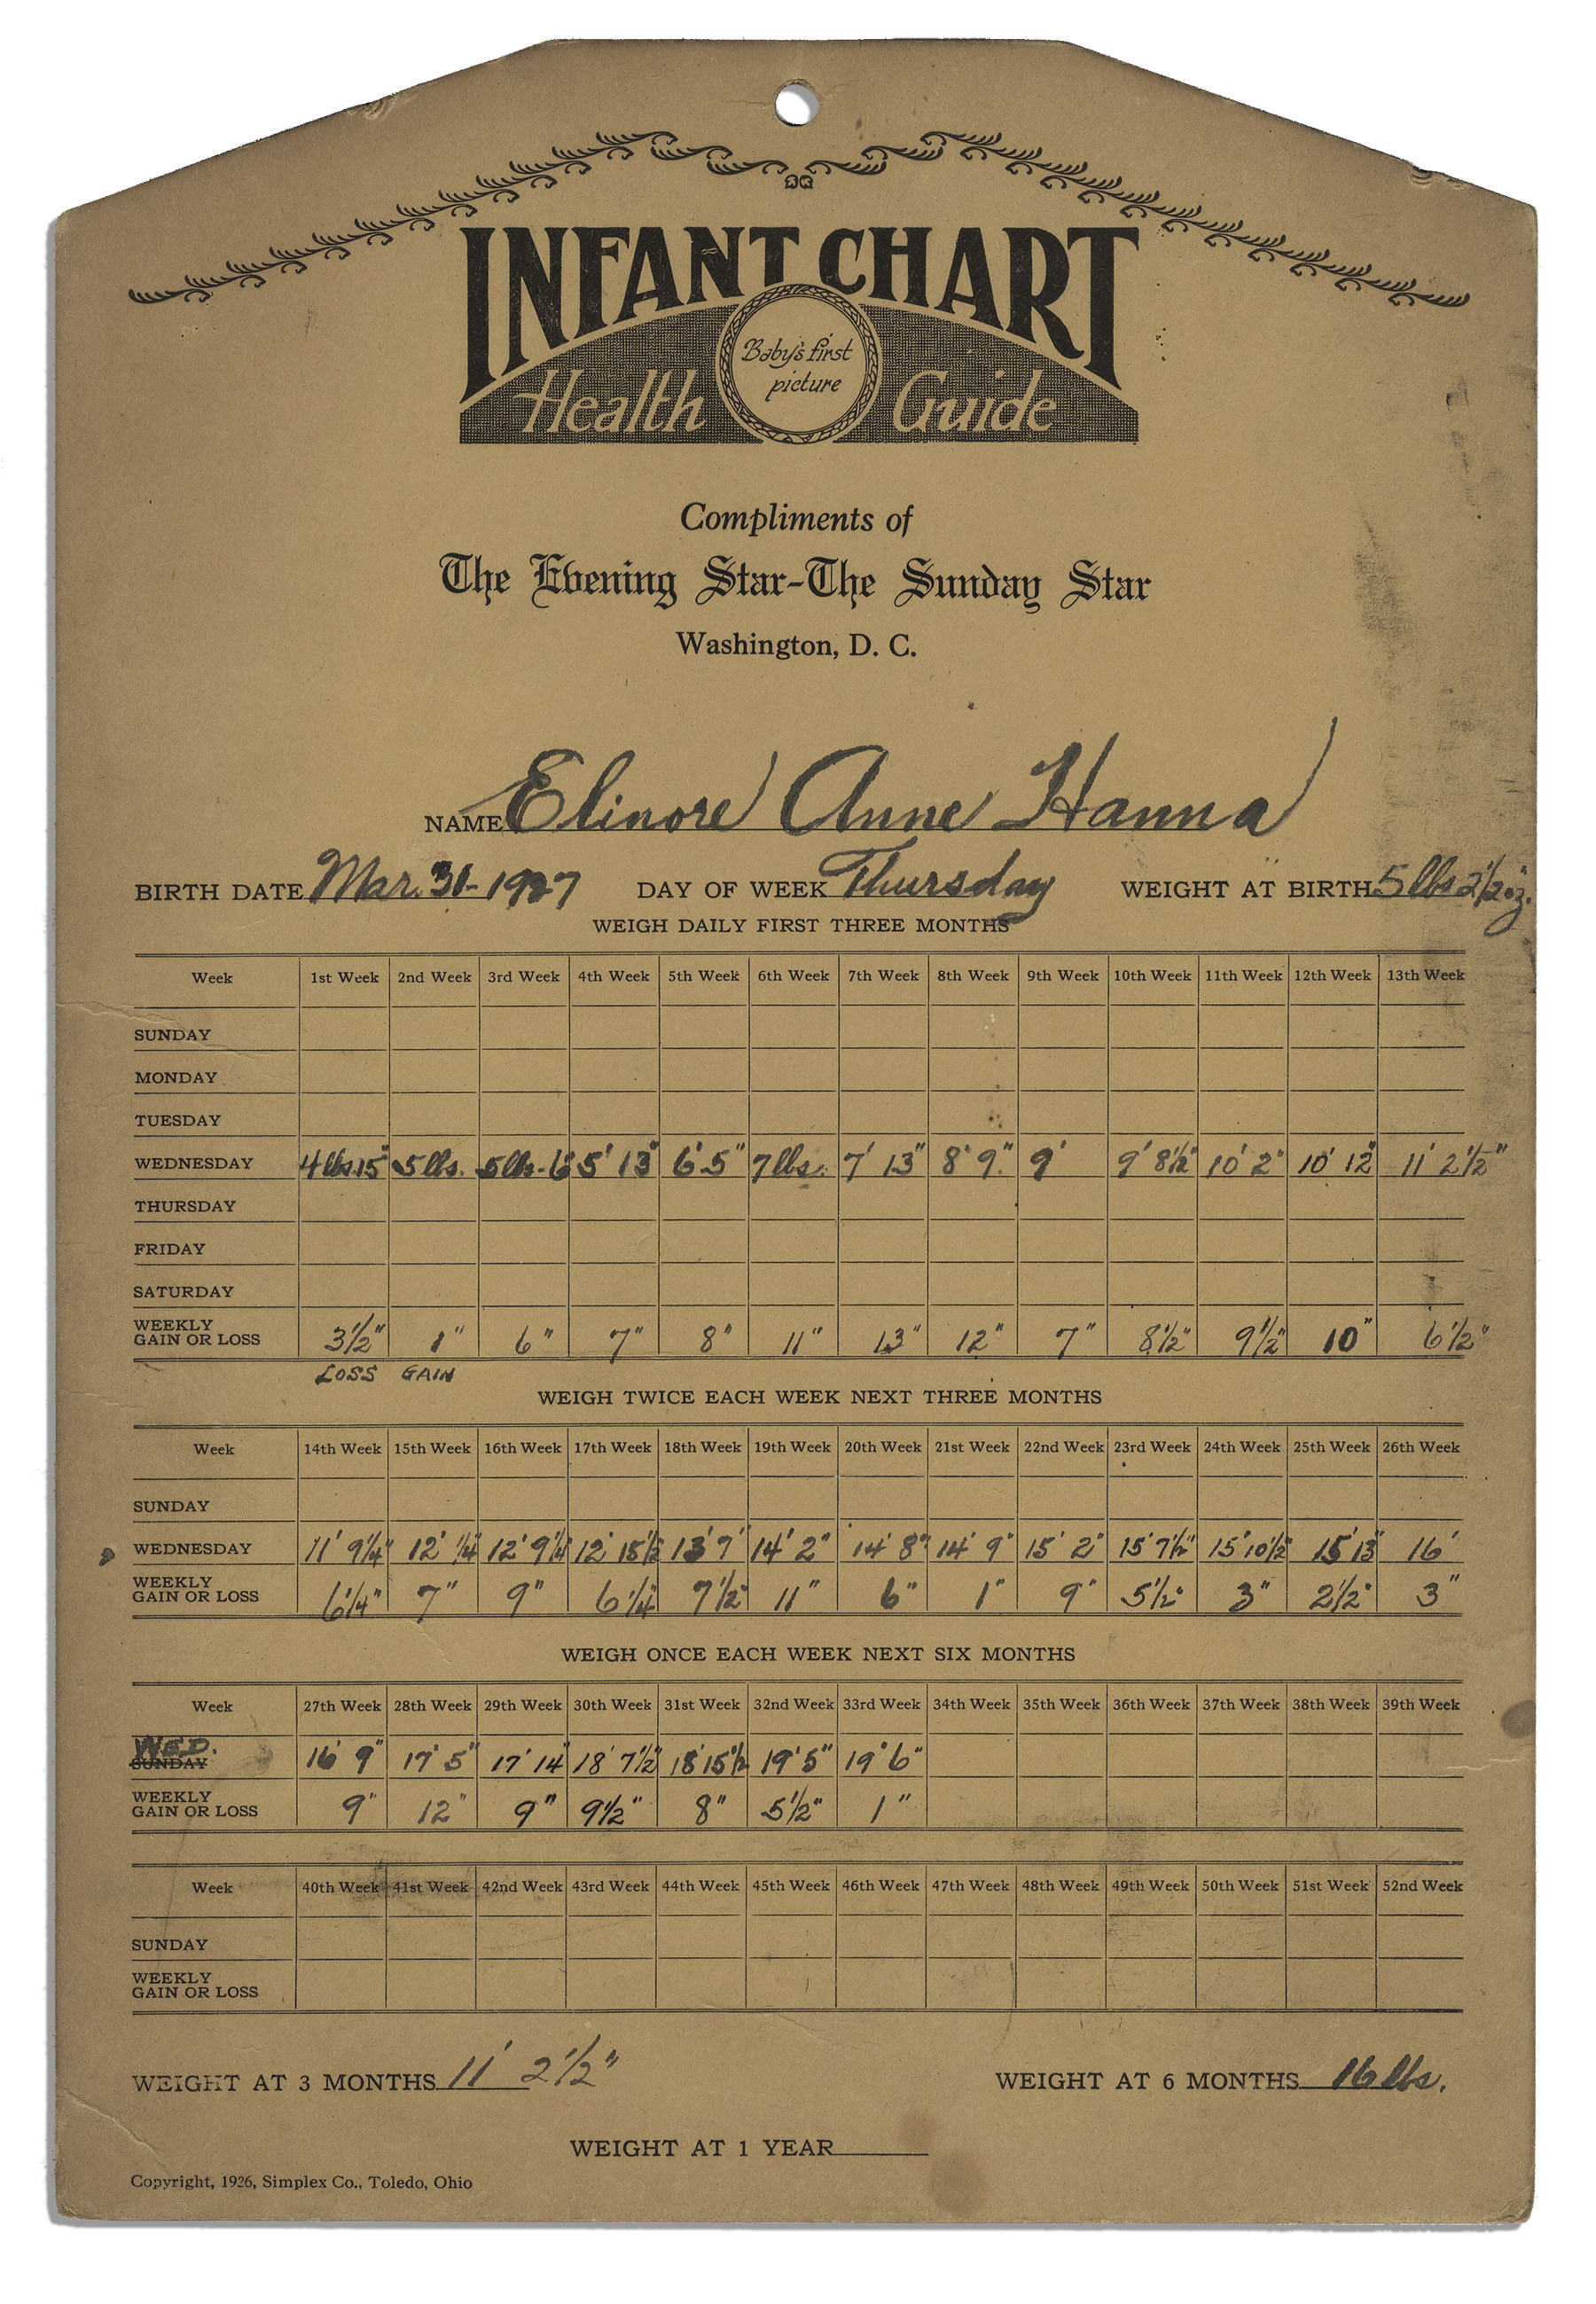 INFANT CHART
Health Guide
Baby's first
picture
Compliments of
The Evening Star-The Sunday Star
Washington, D. C.
NAME Elinore Anne Hanna
BIRTH DATE Mar. 31- 1927 DAY OF WEEK Thursday WEIGHT AT BIRTH 5 lbs 2 1/2 oz.
WEIGH DAILY FIRST THREE MONTHS
Week 1st Week 2nd Week 3rd Week 4th Week 5th Week 6th Week 7th Week 8th Week 9th Week 10th Week 11th Week 12th Week 13th Week
SUNDAY
MONDAY
TUESDAY
WEDNESDAY 4 lbs. 15" 5 lbs. 5 lbs. 6" 5' 13" 6' 5" 7 lbs. 7' 13" 8' 9" 9' 9' 8 1/2" 10' 2" 10' 12" 11' 2 1/2"
THURSDAY
FRIDAY
SATURDAY
WEEKLY
GAIN OR LOSS 3 1/2" 1" 6" 7" 8" 11" 13" 12" 7" 8 1/2" 9 1/2" 10" 6 1/2"
LOSS GAIN
WEIGH TWICE EACH WEEK NEXT THREE MONTHS
Week 14th Week 15th Week 16th Week 17th Week 18th Week 19th Week 20th Week 21st Week 22nd Week 23rd Week 24th Week 25th Week 26th Week
SUNDAY
WEDNESDAY 11' 9 1/4" 12' 1/4" 12' 9 1/4" 12' 15 1/2 13' 7' 14' 2" 14' 8" 14' 9" 15' 2" 15' 7 1/2" 15' 10 1/2" 15' 13" 16'
WEEKLY
GAIN OR LOSS 6 1/4" 7" 9" 6 1/4" 7 1/2" 11" 6" 1" 9" 5 1/2" 3" 2 1/2" 3"
WEIGH ONCE EACH WEEK NEXT SIX MONTHS
Week 27th Week 28th Week 29th Week 30th Week 31st Week 32nd Week 33rd Week 34th Week 35th Week 36th Week 37th Week 38th Week 39th Week
WED.
SUNDAY 16' 9" 17' 5" 17' 14" 18' 7 1/2" 18' 15 1/2 19' 5" 19' 6"
WEEKLY
GAIN OR LOSS 9" 12" 9" 9 1/2" 8" 5 1/2" 1"
Week 40th Week 41st Week 42nd Week 43rd Week 44th Week 45th Week 46th Week 47th Week 48th Week 49th Week 50th Week 51st Week 52nd Week
SUNDAY
WEEKLY
GAIN OR LOSS
WEIGHT AT 3 MONTHS 11' 2 1/2" WEIGHT AT 6 MONTHS 16 lbs.
WEIGHT AT 1 YEAR
Copyright, 1926, Simplex Co., Toledo, Ohio